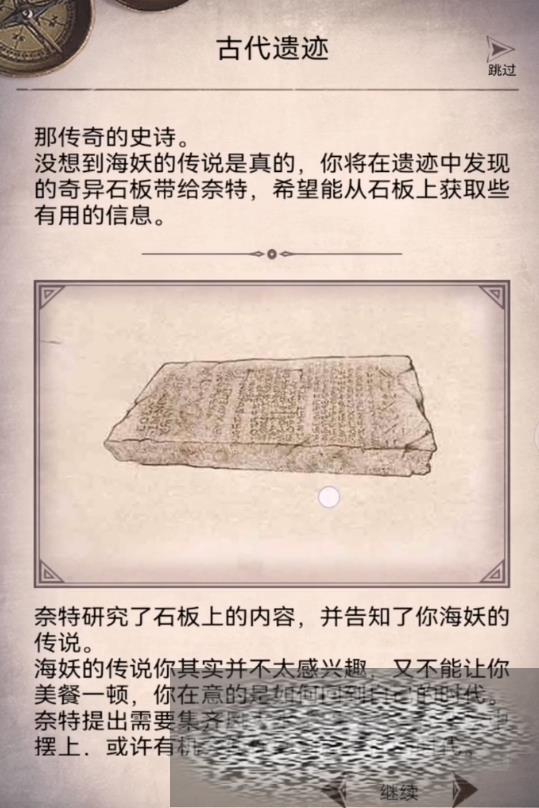 古代遗迹
跳过
那传奇的史诗。
没想到海妖的传说是真的，你将在遗迹中发现
的奇异石板带给奈特，希望能从石板上获取些
有用的信息。
奈特研究了石板上的内容，并告知了你海妖的
传说。
海妖的传说你其实并不太感兴趣，又不能让你
美餐一顿，你在意的是如何回到自己的时代。
奈特提出需要集齐
摆上．或许有机
继续